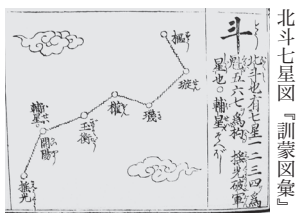 北斗七星図『訓蒙図彙』
斗
北斗也有七星一二三四爲
魁五六七爲杓 搖光破軍
星也。輔星
樞
璇
璣
權
玉衡
輔星
開陽
搖光